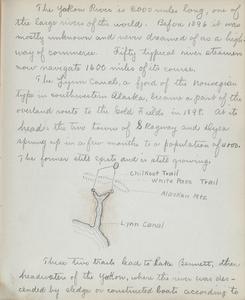 The Yukon River is 2000 miles long, one of
the large rivers of the world. Before 1896 it was
mostly unknown and never dreamed of as a high-
way of commerce. Fifty typical river steamers
now navigate 1600 miles of its course.
The Lynn Canal, a fjord of the Norwegian
type in southwestern Alaska, became a part of the
overland route to the Gold Fields in 1898. At its
head the two towns of Skagway and Dyea
sprung up in a few months to a population of
The former still exists and is still growing.
Chilkoot Trail
White Pass Trail
Alaskan Mts
Lynn Canal
These two trails lead to Lake Bennett, the
headwaters of the Yukon, where the river was des-
cended by sledge or constructed boats according to